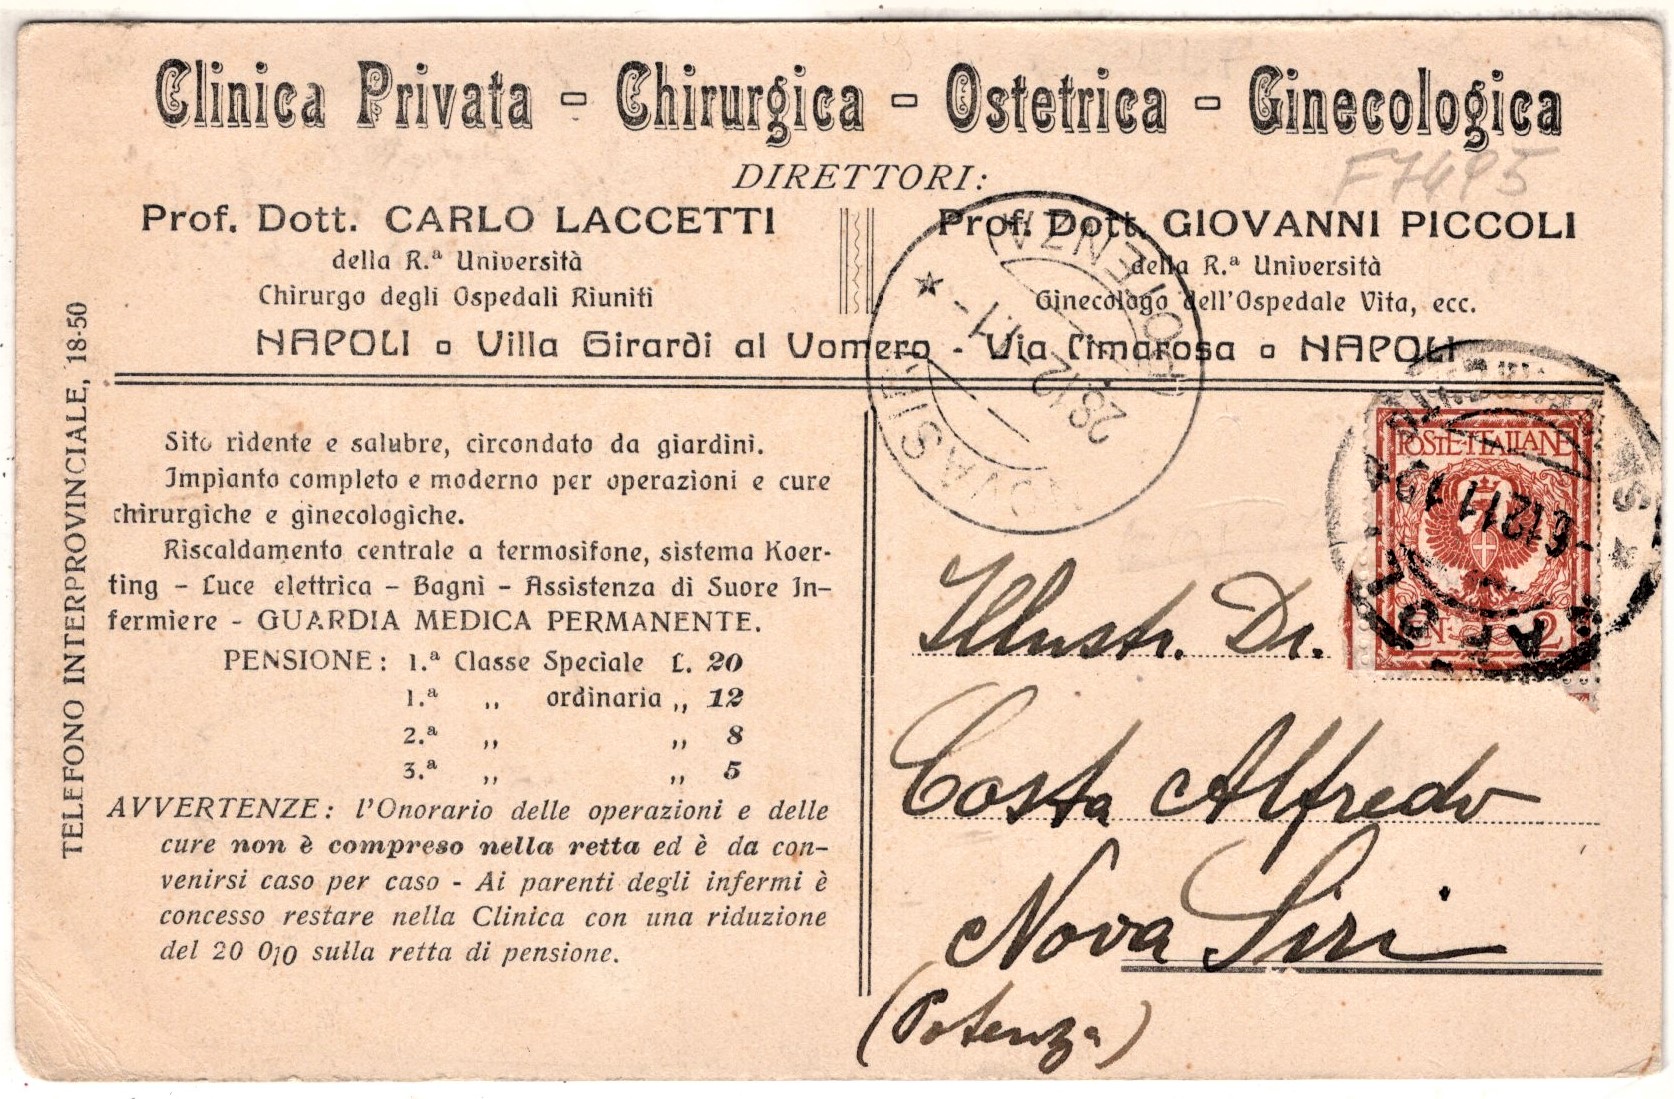 Clinica Privata - Chirurgica - Ostetrica - Ginecologica
F7495
DIRETTORI:
Prof. Dott. CARLO LACCETTI
della R.ª Università
Chirurgo degli Ospedali Riuniti
Prof. Dott. GIOVANNI PICCOLI
della R.ª Università
Ginecologo dell'Ospedale Vita, ecc.
NAPOLI o Villa Girardi al Vomero - Via Cimarosa o NAPOLI
TELEFONO INTERPROVINCIALE, 18-50
Sito ridente e salubre, circondato da giardini.
Impianto completo e moderno per operazioni e cure
chirurgiche e ginecologiche.
Riscaldamento centrale a termosifone, sistema Koer-
ting - Luce elettrica - Bagni - Assistenza di Suore In-
fermiere - GUARDIA MEDICA PERMANENTE.
PENSIONE: 1.ª Classe Speciale £. 20
1.ª ,, ordinaria ,, 12
2.ª ,, ,, 8
3.ª ,, ,, 5
AVVERTENZE: l'Onorario delle operazioni e delle
cure non è compreso nella retta ed è da con-
venirsi caso per caso - Ai parenti degli infermi è
concesso restare nella Clinica con una riduzione
del 20 0|0 sulla retta di pensione.
NOVASIRI
28.12.11
* POTENZA
POSTE·ITALIANE
CEN. 2
NAPOLI
6 12 11
Illustr. Dr.
Costa Alfredo
Nova Siri
(Potenza)